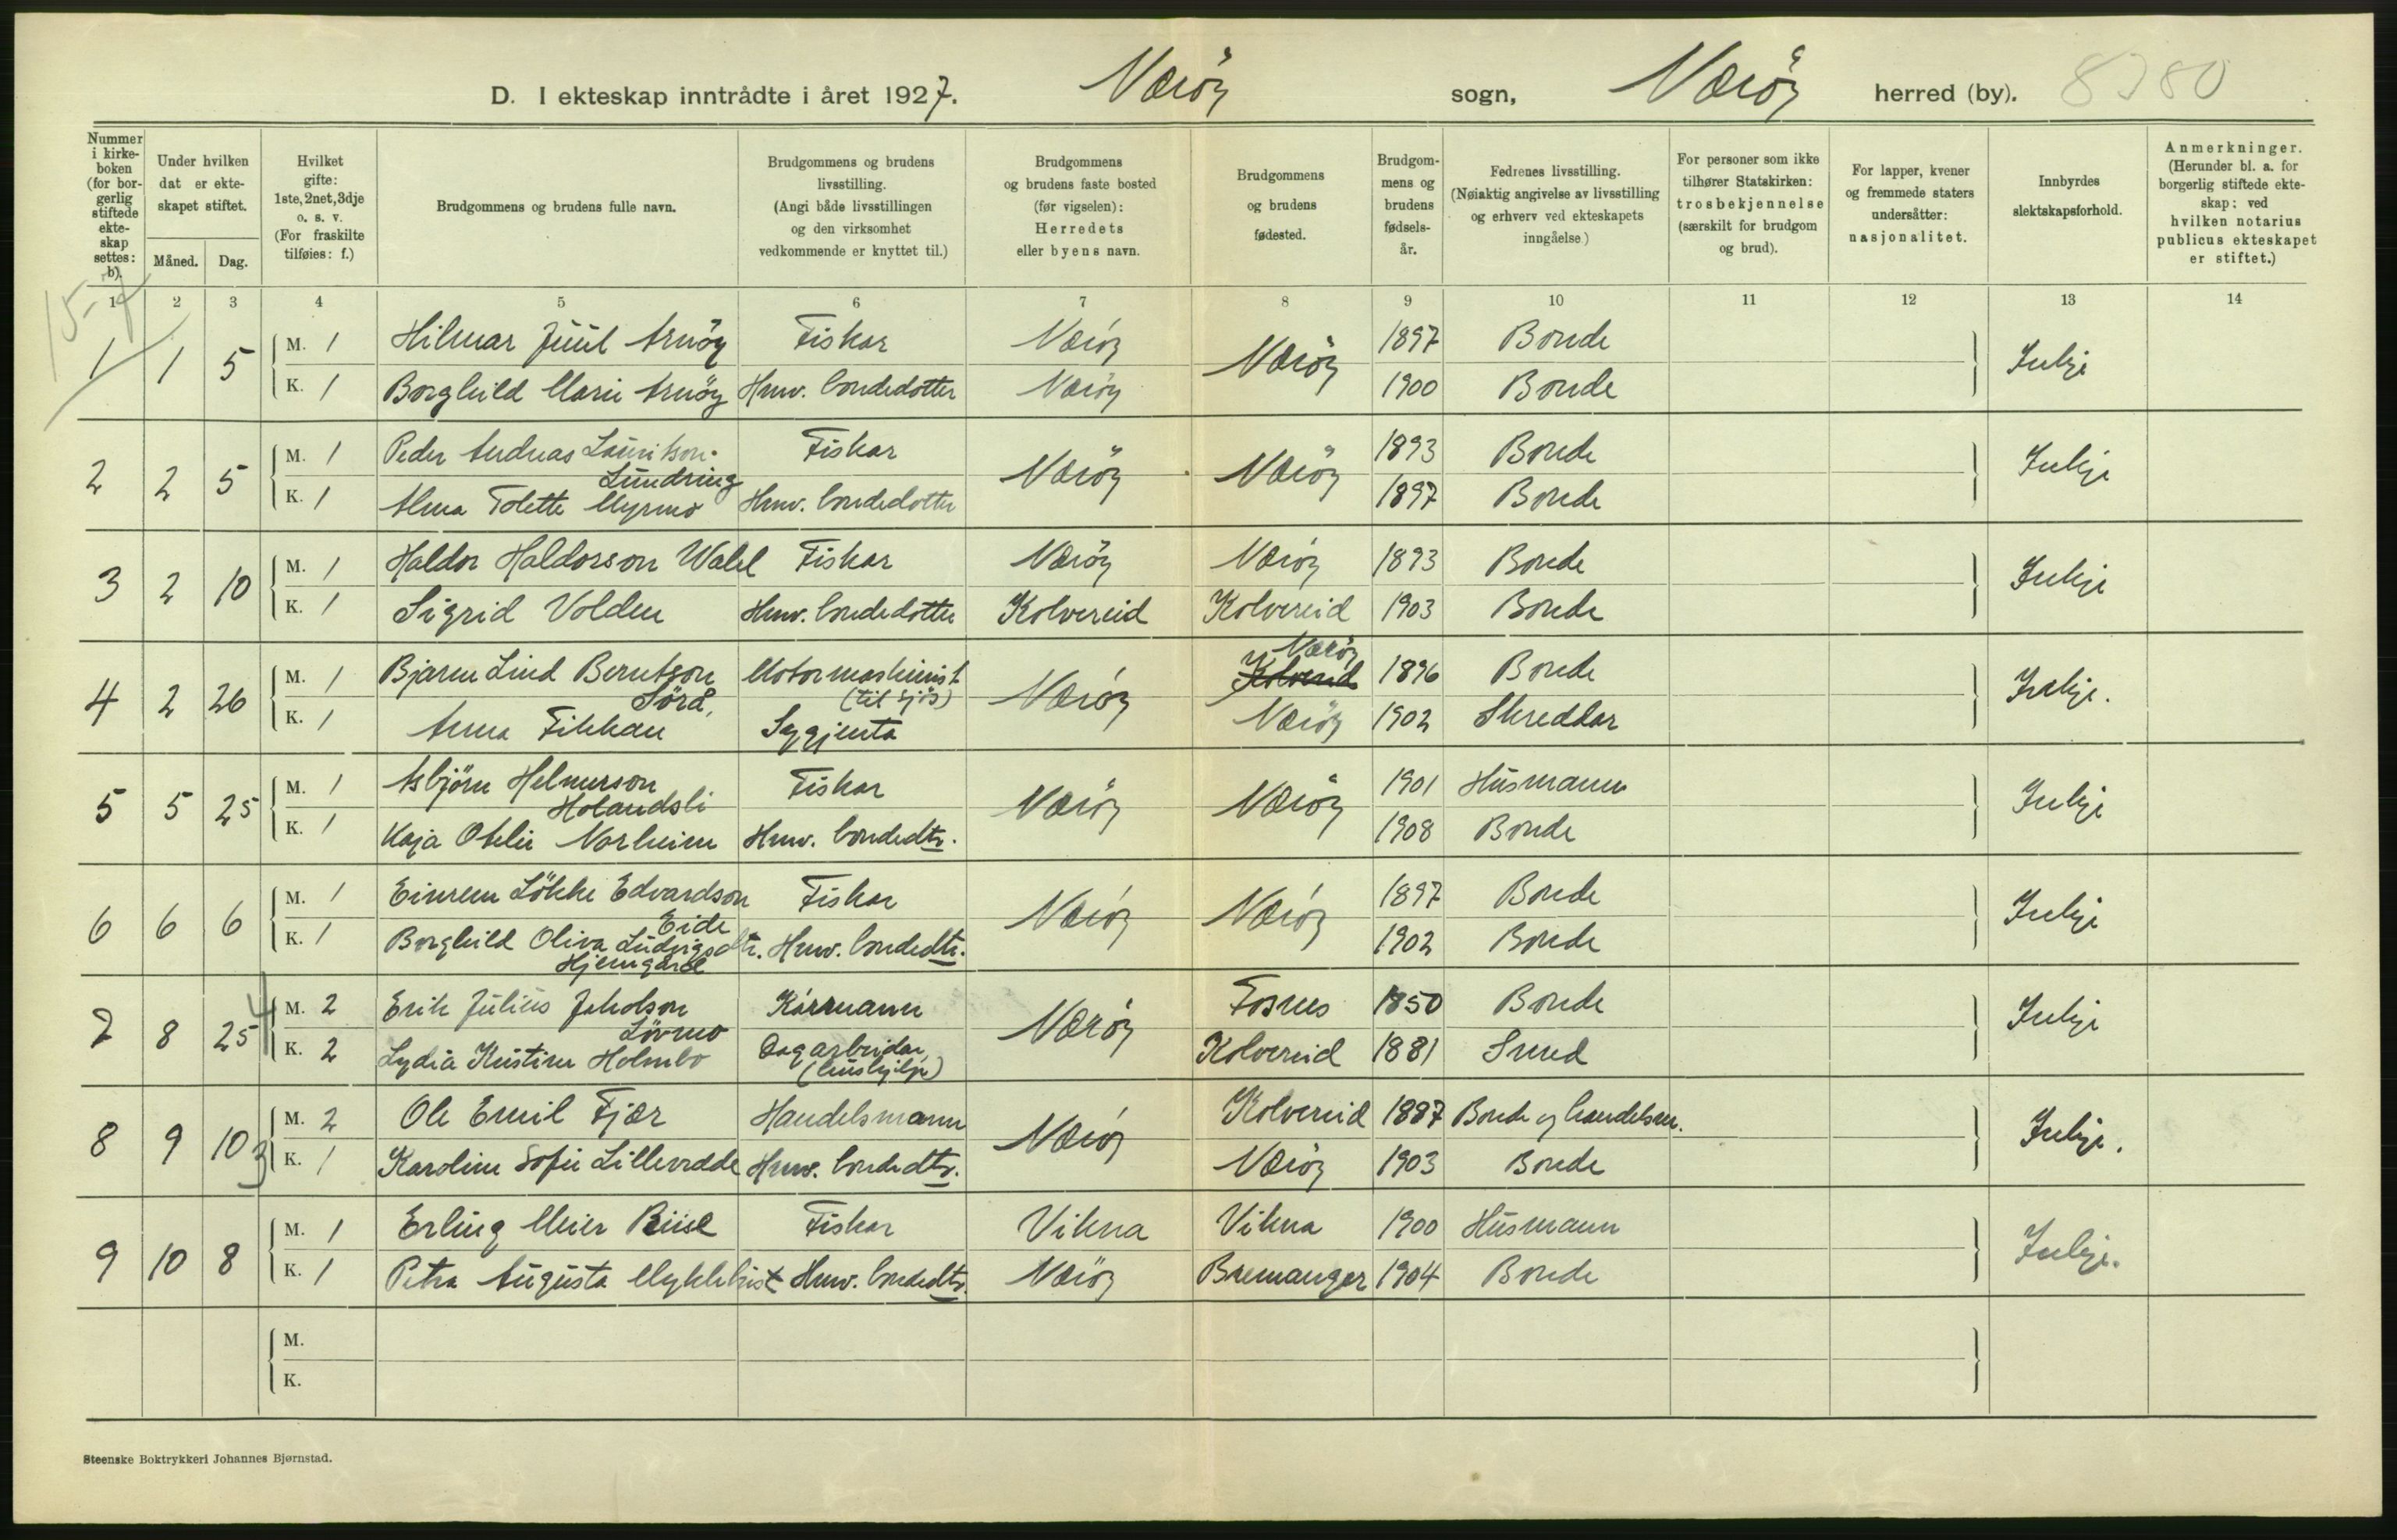 D. I ekteskap inntrådte i året 1927. Nærøy sogn, Nærøy herred (by). 8380
Nummer i kirke-boken (for bor-gerlig stiftede ekte-skap settes: b).
Under hvilken dat er ekte-skapet stiftet.
Måned. Dag.
Hvilket gifte: 1ste, 2net, 3dje o. s. v. (For fraskilte tilføies: f.)
Brudgommens og brudens fulle navn.
Brudgommens og brudens livsstilling. (Angi både livsstillingen og den virksomhet vedkommende er knyttet til.)
Brudgommens og brudens faste bosted (før vigselen): Herredets eller byens navn.
Brudgommens og brudens fødested.
Brudgom-mens og brudens fødsels-år.
Fedrenes livsstilling. (Nøiaktig angivelse av livsstilling og erhverv ved ekteskapets inngåelse)
For personer som ikke tilhører Statskirken: trosbekjennelse (særskilt for brudgom og brud).
For lapper, kvener og fremmede staters undersåtter: nasjonalitet.
Innbyrdes slektskapsforhold.
Anmerkninger. (Herunder bl. a. for borgerlig stiftede ekte-skap: ved hvilken notarius publicus ekteskapet er stiftet.)
1 2 3 4 5 6 7 8 9 10 11 12 13 14
15-7
1 1 5 M. 1 Hilmar Juul Arnöy Fiskar Næröy Næröy 1897 Bonde Inkje
K. 1 Borghild Marie Arnöy Hmv. bondedotter Næröy 1900 Bonde
2 2 5 M. 1 Peder Andreas Lauritson Lundring Fiskar Næröy Næröy 1893 Bonde Inkje
K. 1 Alma Tolette Myrmo Hmv. bondedotter 1897 Bonde
3 2 10 M. 1 Haldor Haldorson Wahl Fiskar Næröy Næröy 1893 Bonde Inkje
K. 1 Sigrid Volden Hmv. bondedotter Kolvereid Kolvereid 1903 Bonde
4 2 26 M. 1 Bjarne Lind Berntson Sörå, Motormaskinist (til sjös) Næröy Kolvereid Næröy 1896 Bonde Inkje.
K. 1 Anna Fikkan Sygjenta Næröy 1902 Skreddar
5 5 25 M. 1 Asbjörn Helmerson Holandsli Fiskar Næröy Næröy 1901 Husmann Inkje
K. 1 Kaja Otelie Norheim Hmv. bondedtr. 1908 Bonde
6 6 6 M. 1 Einrem Lökke Edvardson Eide Fiskar Næröy Næröy 1897 Bonde Inkje
K. 1 Borghild Oliva Ludvigsdtr. Hjemgård Hmv. bondedtr. 1902 Bonde
7 8 25 4 M. 2 Erik Julius Jakobson Lövmo Kårmann Næröy Fosnes 1850 Bonde Inkje
K. 2 Lydia Kristine Holmbo Dagarbeidar (hushjelp) Kolvereid 1881 Smed
8 9 10 3 M. 2 Ole Emil Fjær Handelsmann Nærøy Kolvereid 1887 Bonde og handelsm. Inkje.
K. 1 Karoline Sofie Lillevedde Hmv. bondedtr. Næröy 1903 Bonde
9 10 8 M. 1 Erling Meier Fiskar Vikna Vikna 1900 Husmann Inkje.
K. 1 Petra Augusta Myklebust Hmv. bondedtr. Næröy Bremanger 1904 Bonde
M.
K.
Steenske Boktrykkeri Johannes Bjørnstad.